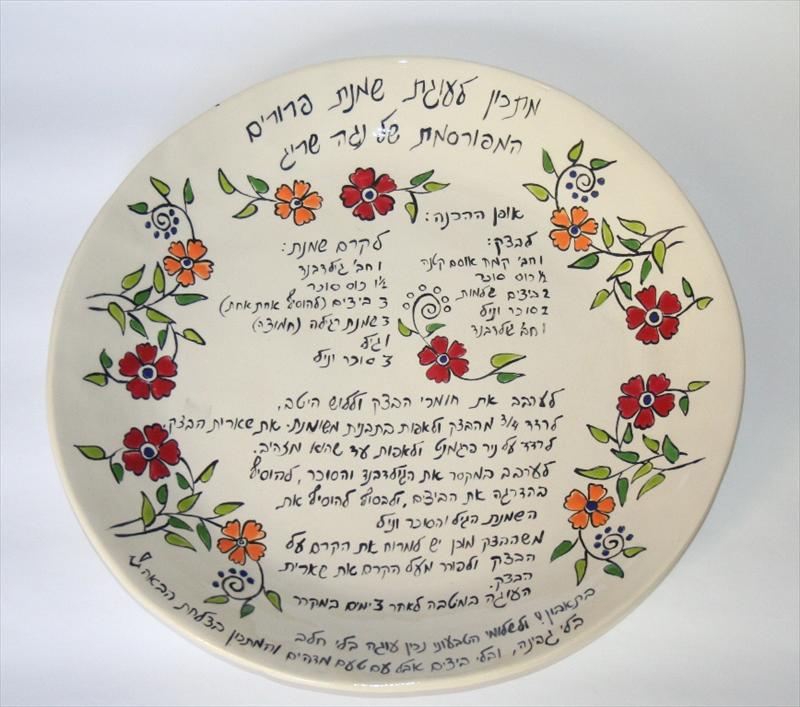 מתכון לעוגת שמנת פרורים
המפורסמת של נגה שריג
אופן ההכנה:
לבצק:
1 חב' קמח אוסם קטנה
½ כוס סוכר
2 ביצים שלמות
2 סוכר וניל
1 חב' גולדבנד
לקרם שמנת:
1 חב' גולדבנד
1½ כוס סוכר
3 ביצים (להוסיף אחת אחת)
3 שמנת רגילה (חמוצה)
1 גיל
3 סוכר וניל
לערבב את חומרי הבצק וללוש היטב,
לרדד 3/4 מהבצק ולאפות בתבנית משומנת. את שארית הבצק
לרדד על ניר פרגמנט ולאפות עד שהוא מזהיב.
לערבב במקסר את הגולדבנד והסוכר, להוסיף
בהדרגה את הביצים, ולבסוף להוסיף את
השמנת הגיל והסוכר וניל
משהבצק מוכן יש למרוח את הקרם על
הבצק ולפורר מעל הקרם את שארית
הבצק.
העוגה במיטבה לאחר 2 ימים במקרר
בתאבון! ולשלומי הטבעוני נכין עוגה בלי חלב
בלי גבינה, ובלי ביצים אבל עם טעם מדהים והמתכון בצלחת הבאה!